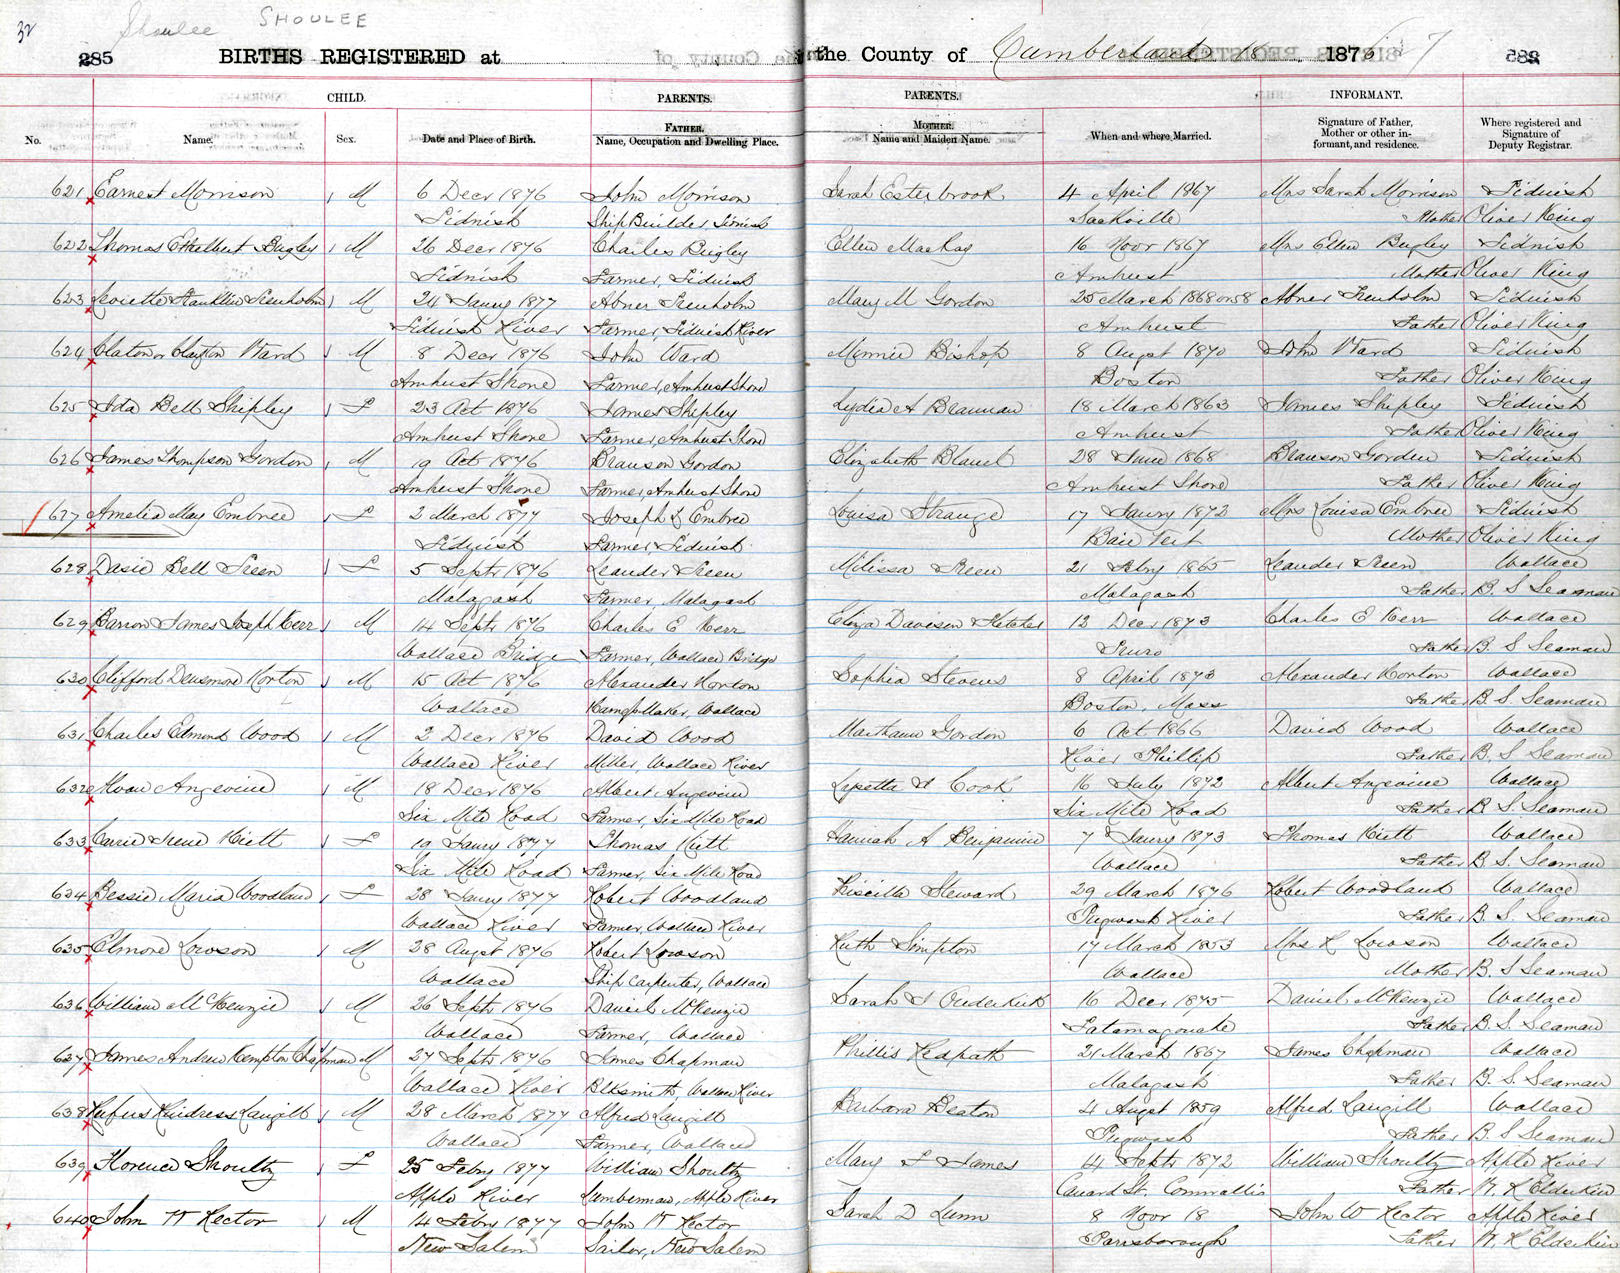 32
Shoulee SHOULEE
285 BIRTHS REGISTERED at the County of Cumberland 1876 7
CHILD. PARENTS. PARENTS. INFORMANT.
No. Name. Sex. Date and Place of Birth. FATHER. Name, Occupation and Dwelling Place. MOTHER. Name and Maiden Name. When and where Married. Signature of Father, Mother or other informant, and residence. Where registered and Signature of Deputy Registrar.
621 Earnest Morrison M 6 Decr 1876 John Morrison Sarah Esterbrook 4 April 1867 Mrs Sarah Morrison Tidnish
Tidnish Ship Builder Tidnish Sackville Mother Oliver King
622 Thomas Ethelbert Bugley M 26 Decr 1876 Charles Bugley Ellen MacKay 16 Novr 1867 Mrs Ellen Bugley Tidnish
Tidnish Farmer, Tidnish Amhurst Mother Oliver King
623 Franklin Trenholm M 24 Jany 1877 Abner Trenholm Mary M Gordon 25 March 1868 or 58 Abner Trenholm Tidnish
Tidnish River Farmer, Tidnish River Amhurst Father Oliver King
624 Claton or Clayton Ward M 8 Decr 1876 John Ward Minnie Bishop 8 Augst 1870 John Ward Tidnish
Amhurst Shore Farmer, Amhurst Shore Boston Father Oliver King
625 Ida Bell Shipley F 23 Oct 1876 James Shipley Lydia A Brannan 18 March 1863 James Shipley Tidnish
Amhurst Shore Farmer, Amhurst Shore Amhurst Father Oliver King
626 James Thompson Gordon M 19 Oct 1876 Branson Gordon Elizabeth 28 June 1868 Branson Gordon Tidnish
Amhurst Shore Farmer, Amhurst Shore Amhurst Shore Father Oliver King
627 Amelia May Embree F 2 March 1877 Joseph Embree Louisa Strange 17 Jany 1872 Mrs Louisa Embree Tidnish
Tidnish Farmer, Tidnish Baie Vert Mother Oliver King
628 Dasie Bell Treen F 5 Septr 1876 Leander Treen Milissa Treen 21 Feby 1865 Leander Treen Wallace
Malagash Farmer, Malagash Malagash Father B. S Seaman
629 Barron James Joseph Kerr M 14 Septr 1876 Charles E Kerr Eliza Davison Fletcher 12 Decr 1873 Charles E Kerr Wallace
Wallace Bridge Farmer, Wallace Bridge Truro Father B. S Seaman
630 Clifford Densmore Horton M 15 Oct 1876 Alexander Horton Sophia Stevens 8 April 1873 Alexander Horton Wallace
Wallace Maker, Wallace Boston, Mass Father B. S Seaman
631 Charles Edmond Wood M 2 Decr 1876 David Wood Marthann Gordon 6 Oct 1866 David Wood Wallace
Wallace River Miller, Wallace River River Phillip Father B. S Seaman
632 Angevine M 18 Decr 1876 Albert Angevine Cook 16 July 1872 Albert Angevine Wallace
Six Mile Road Farmer, Six Mile Road Six Mile Road Father B S Seaman
633 Carrie Irene Hiett F 19 Jany 1877 Thomas Hiett Hannah A Benjamin 7 Jany 1873 Thomas Hiett Wallace
Six Mile Road Farmer, Six Mile Road Wallace Father B. S. Seaman
634 Bessie Maria Woodland F 28 Jany 1877 Robert Woodland Priscilla Steward 29 March 1876 Robert Woodland Wallace
Wallace River Farmer, Wallace River Pugwash River Father B. S. Seaman
635 Elmore Lowson M 28 Augst 1876 Robert Lowson Ruth Simpton 17 March 1853 Mrs R Lowson Wallace
Wallace Ship Carpenter, Wallace Wallace Mother B. S Seaman
636 William McKenzie M 26 Septr 1876 Daniel McKenzie Sarah J Ouderkirk 16 Decr 1875 Daniel McKenzie Wallace
Wallace Farmer, Wallace Tatamagouche Father B. S. Seaman
637 James Andrew Kempton Chapman M 27 Septr 1876 James Chapman Phillis Redpath 21 March 1867 James Chapman Wallace
Wallace River Blksmith, Wallace River Malagash Father B. S. Seaman
638 Rufus Langill M 28 March 1877 Alfred Langill Barbara Beaton 4 Augst 1859 Alfred Langill Wallace
Wallace Farmer, Wallace Pugwash Father B. S Seaman
639 Florence Shoultz F 25 Feby 1877 William Shoultz Mary James 14 Septr 1872 William Shoultz Apple River
Apple River Lumberman, Apple River Canard St. Cornwallis Father W. R Elderkin
640 John W Rector M 14 Feby 1877 John W Rector Sarah D Lunn 8 Novr 18 John W Rector Apple River
New Salem Sailor, New Salem Parrsborough Father W. R Elderkin